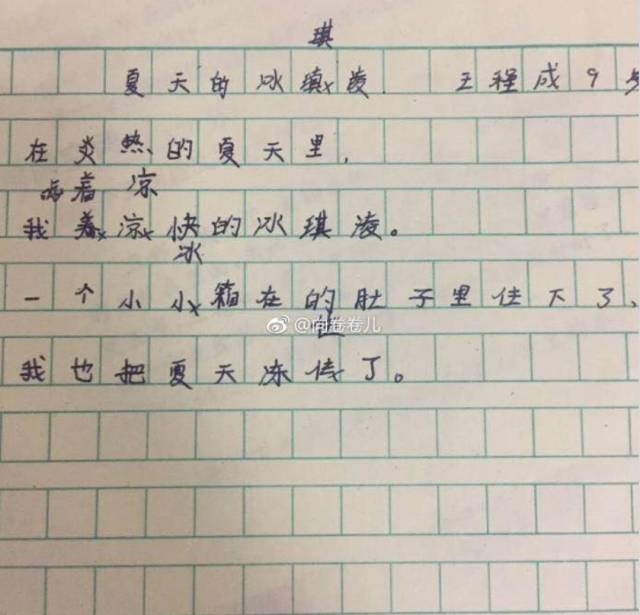 琪
夏天的冰瑱x凌 王程成9岁
在炎热的夏天里,
着 凉
我着x凉x快的冰琪凌。
冰
一个小小x箱在的肚子里住下了、
@向卷卷儿
住
我也把夏天冻x了。